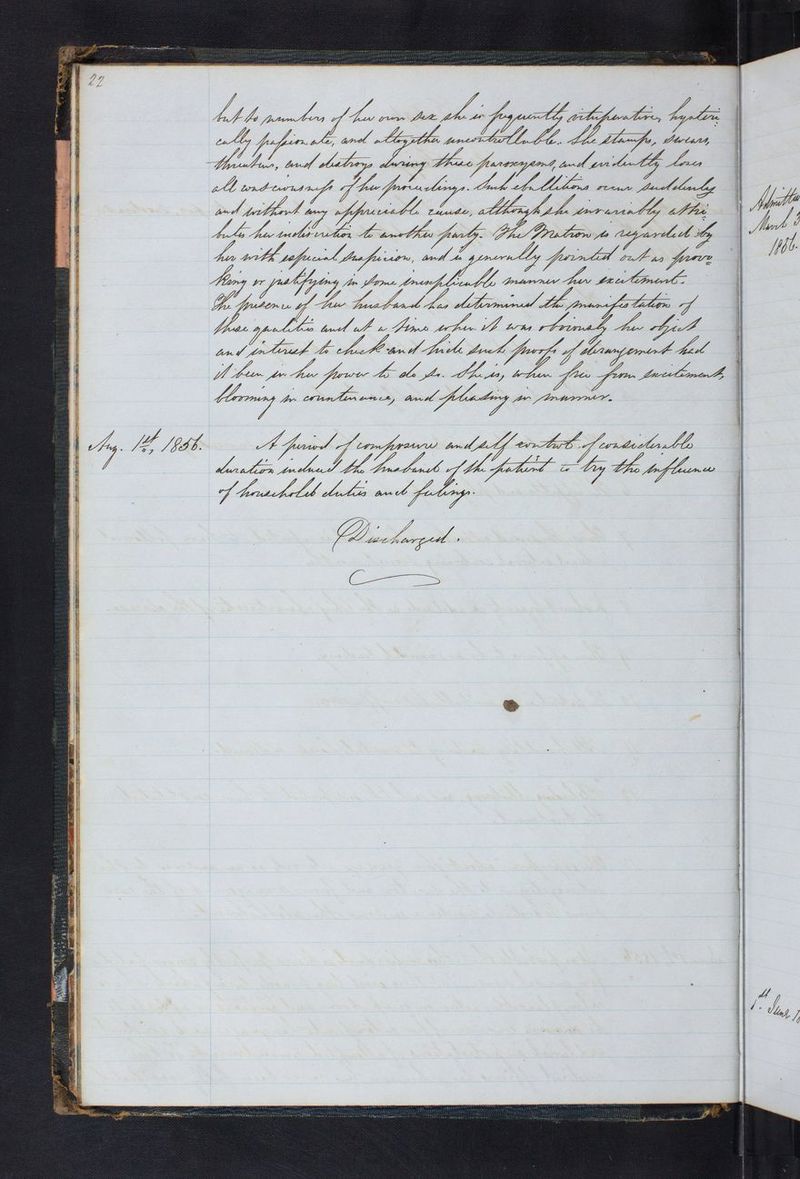 22
but to members of her own sex she is frequently vituperative, hysteri=
cally passionate, and altogether uncontrollable. She stamps, swears,
threatens, and destroys during these paroxysms, and evidently loses
all consciousness of her proceedings. Such ebullitions occur suddenly
and without any appreciable cause, although she invariably attri=
butes her indiscretion to another party. The Matron is regarded by
her with especial suspicion, and is generally pointed out as provo=
king or justifying in some inexplicable manner her excitement.
The presence of her husband has determined the manifestation of
these qualities and at a time when it was obviously her object
and interest to check and hide such proofs of derangement had
it been in her power to do so. She is, when free from excitement,
blooming in countenance, and pleasing in manner.
Aug. 1st, 1856. A period of composure and self control of considerable
duration induced the husband of the patient to try the influence
of household duties and feelings.
Discharged.
Admitted
March
1856.
1st June